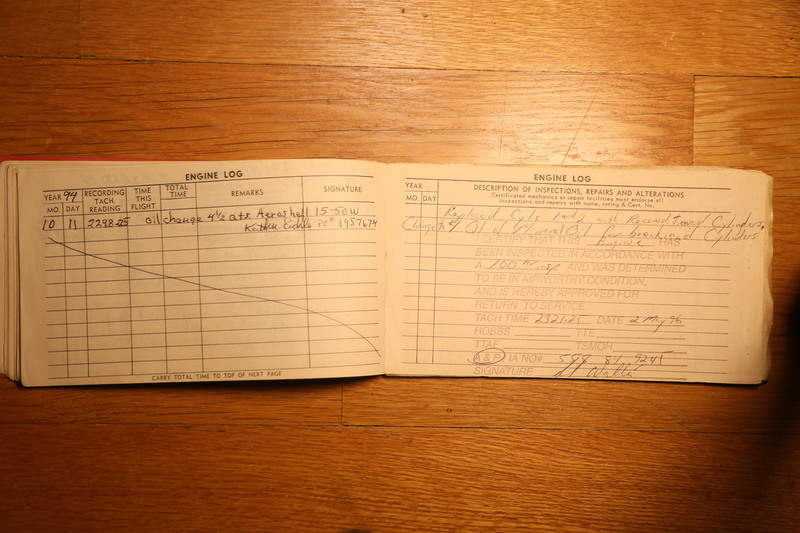 ENGINE LOG
YEAR 94
MO. DAY RECORDING TACH. READING TIME THIS FLIGHT TOTAL TIME REMARKS SIGNATURE
10 11 2298.25 Oil change 4½ qts. Aeroshell 15-50W
Keith Pt# 1957674
CARRY TOTAL TIME TO TOP OF NEXT PAGE
ENGINE LOG
YEAR
MO. DAY
DESCRIPTION OF INSPECTIONS, REPAIRS AND ALTERATIONS
Certificated mechanics or repair facilities must endorse all
inspections and repairs with name, rating & Cert. No.
Replaced Cyls 1 and 2 with Reconditioned Cylinders.
Change to 4 Qt of Mineral Oil for break in of Cylinders
I CERTIFY THAT THIS Engine HAS
BEEN INSPECTED IN ACCORDANCE WITH
A 100 Hr insp AND WAS DETERMINED
TO BE IN AIRWORTHY CONDITION,
AND IS HEREBY APPROVED FOR
RETURN TO SERVICE.
TACH TIME 2321.25 DATE 2 May 96
HOBBS TTE
TTAF TSMOH
A & P IA NO# 548 84 9245
SIGNATURE